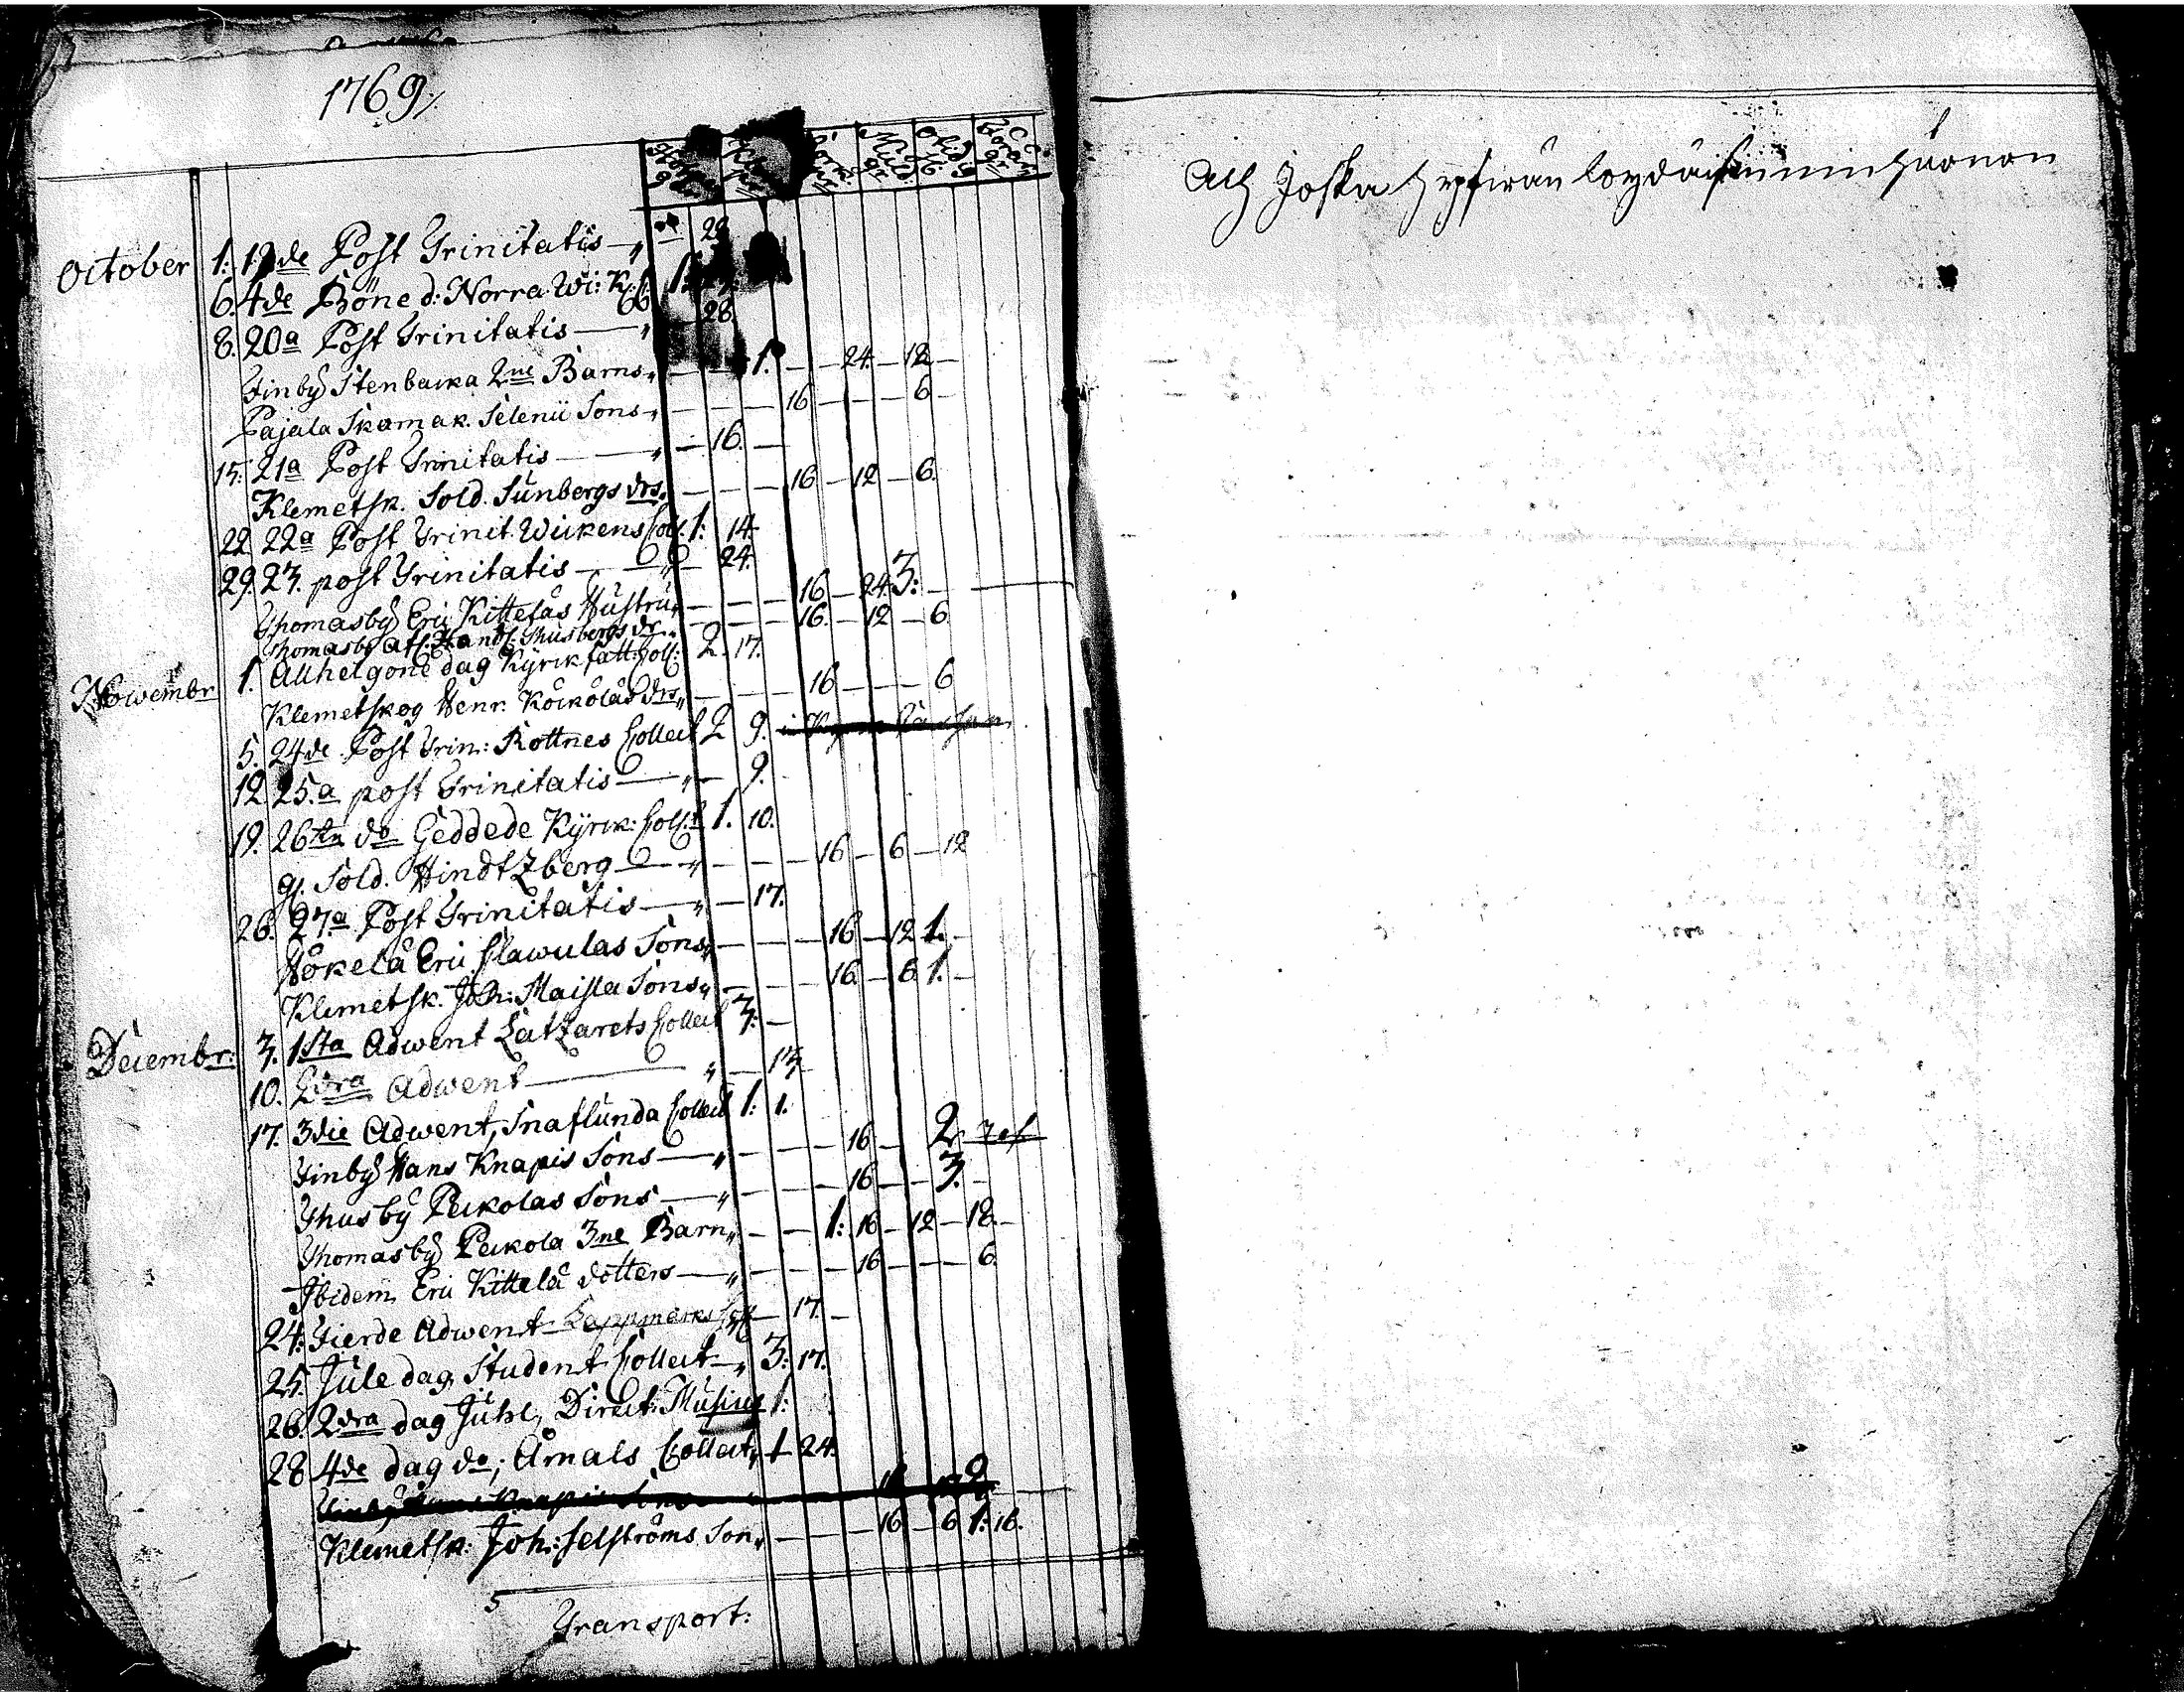 1769
October 1: 19de Post Trinitatis — 28
6. 4de Böne d: Norra Wi: K: 1:
8. 20a Post Trinitatis — 28
Finby Stenbacka 2ne Barns — — 1. — — 24. — 12 —
Pajala Skomak. Selenii Sons — — — 16 — — — 6 —
15. 21a Post Trinitatis — — 16. —
Klemetsk. Sold. Sunbergs drs. — — — 16 — 12 — 6.
22 22a Post Trinit. Wickens Coll. 1: 14.
29. 23. post Trinitatis — — 24.
Thomasby Eric Kittelas Hustru — — — 16 — 24. 3: —
Thomasby Thusbergs dr — — — 16. — 12 — 6
Nowembr 1. Allhelgone dag Kyrik Coll: 2. 17.
Klemetskog Henr. Kockolas drs — — — 16 — — — 6
5. 24de Post Trin: Rottnes Collect 2 9.
12 25.a post Trinitatis — — 9.
19. 26ta do Geddede Kyrk: Coll: 1. 10.
gl. Sold. Hindtzberg — — — — 16 — 6 — 12
26. 27a Post Trinitatis — — 17.
Hokela Eric Clawulas Sons — — — 16 — 12 1. —
Klemetsk. Joh: Maisla Sons — — — 16. — 6. 1. —
Decembr: 3. 1sta Adwent Latzarets Collect 3: —
10. 2dra Adwent — — 13
17. 3die Adwent, Snaflunda Collect 1: 1.
Finby Hans Knapis Sons — — — — 16 — 2
Thusby Peckolas Sons — — — — 16 — — 3. —
Thomasby Peckola 3ne Barn — — 1: 16 — 12 — 18. —
Ibidem Eric Kittela dotters — — — — 16 — — — 6.
24: Fierde Adwent Lappmarks Coll — 17. —
25. Jule dag, Student Collect — 3: 17.
26. 2dra dag Juhl, Direct: Musices 1:
28 4de dag do; Åmals Collect 1 24.
Finby Hans Knapis Sons 2
Klemetsk: Joh: Selströms Son — — — 16 — 6 1: 16.
Transport:
Ach Joska